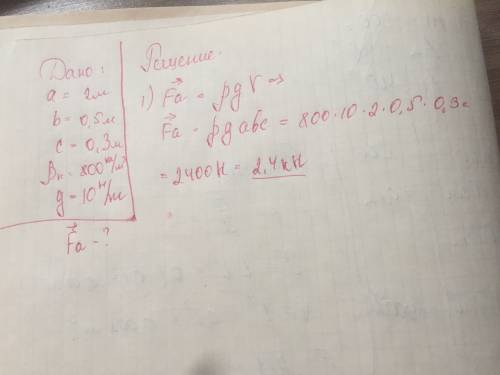 Дано:
a = 2м
b = 0,5м
c = 0,3м
ρк = 800 кг/м³
g = 10 Н/м
Fa - ?
Решение:
1) Fa = ρgV =>
Fa = ρgabc = 800·10·2·0,5·0,3=
= 2400Н = 2,4кН